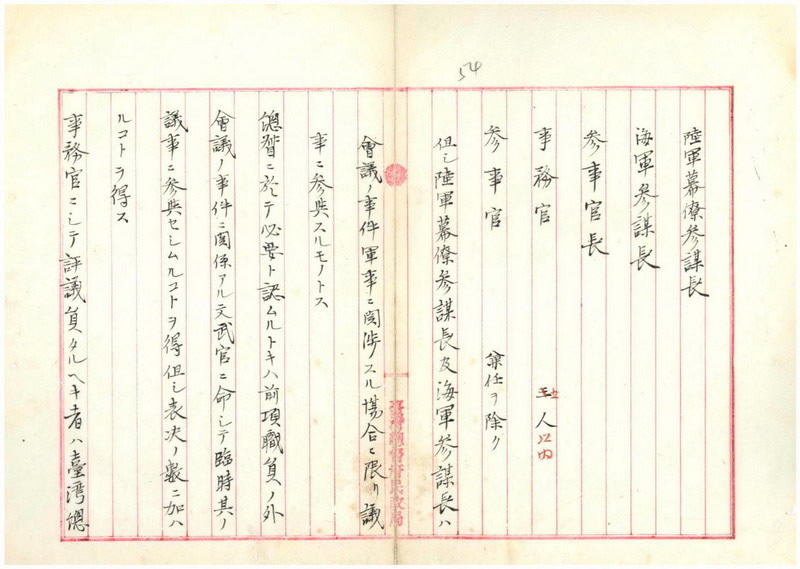 54
陸軍幕僚參謀長
海軍參謀長
參事官長
事務官 五人以内
參事官 兼任ヲ除ク
但シ陸軍幕僚參謀長及海軍參謀長ハ
會議ノ事件軍事ニ関渉スル場合ニ限リ議
事ニ參與スルモノトス
總督ニ於テ必要ト認ムルトキハ前項職員ノ外
會議ノ事件ニ関係アル文武官ニ命シテ臨時其ノ
議事ニ參與セシムルコトヲ得但シ表决ノ數ニ加ハ
ルコトヲ得ス
事務官ニシテ評議員タルヘキ者ハ臺灣總
臺灣總督府民政局